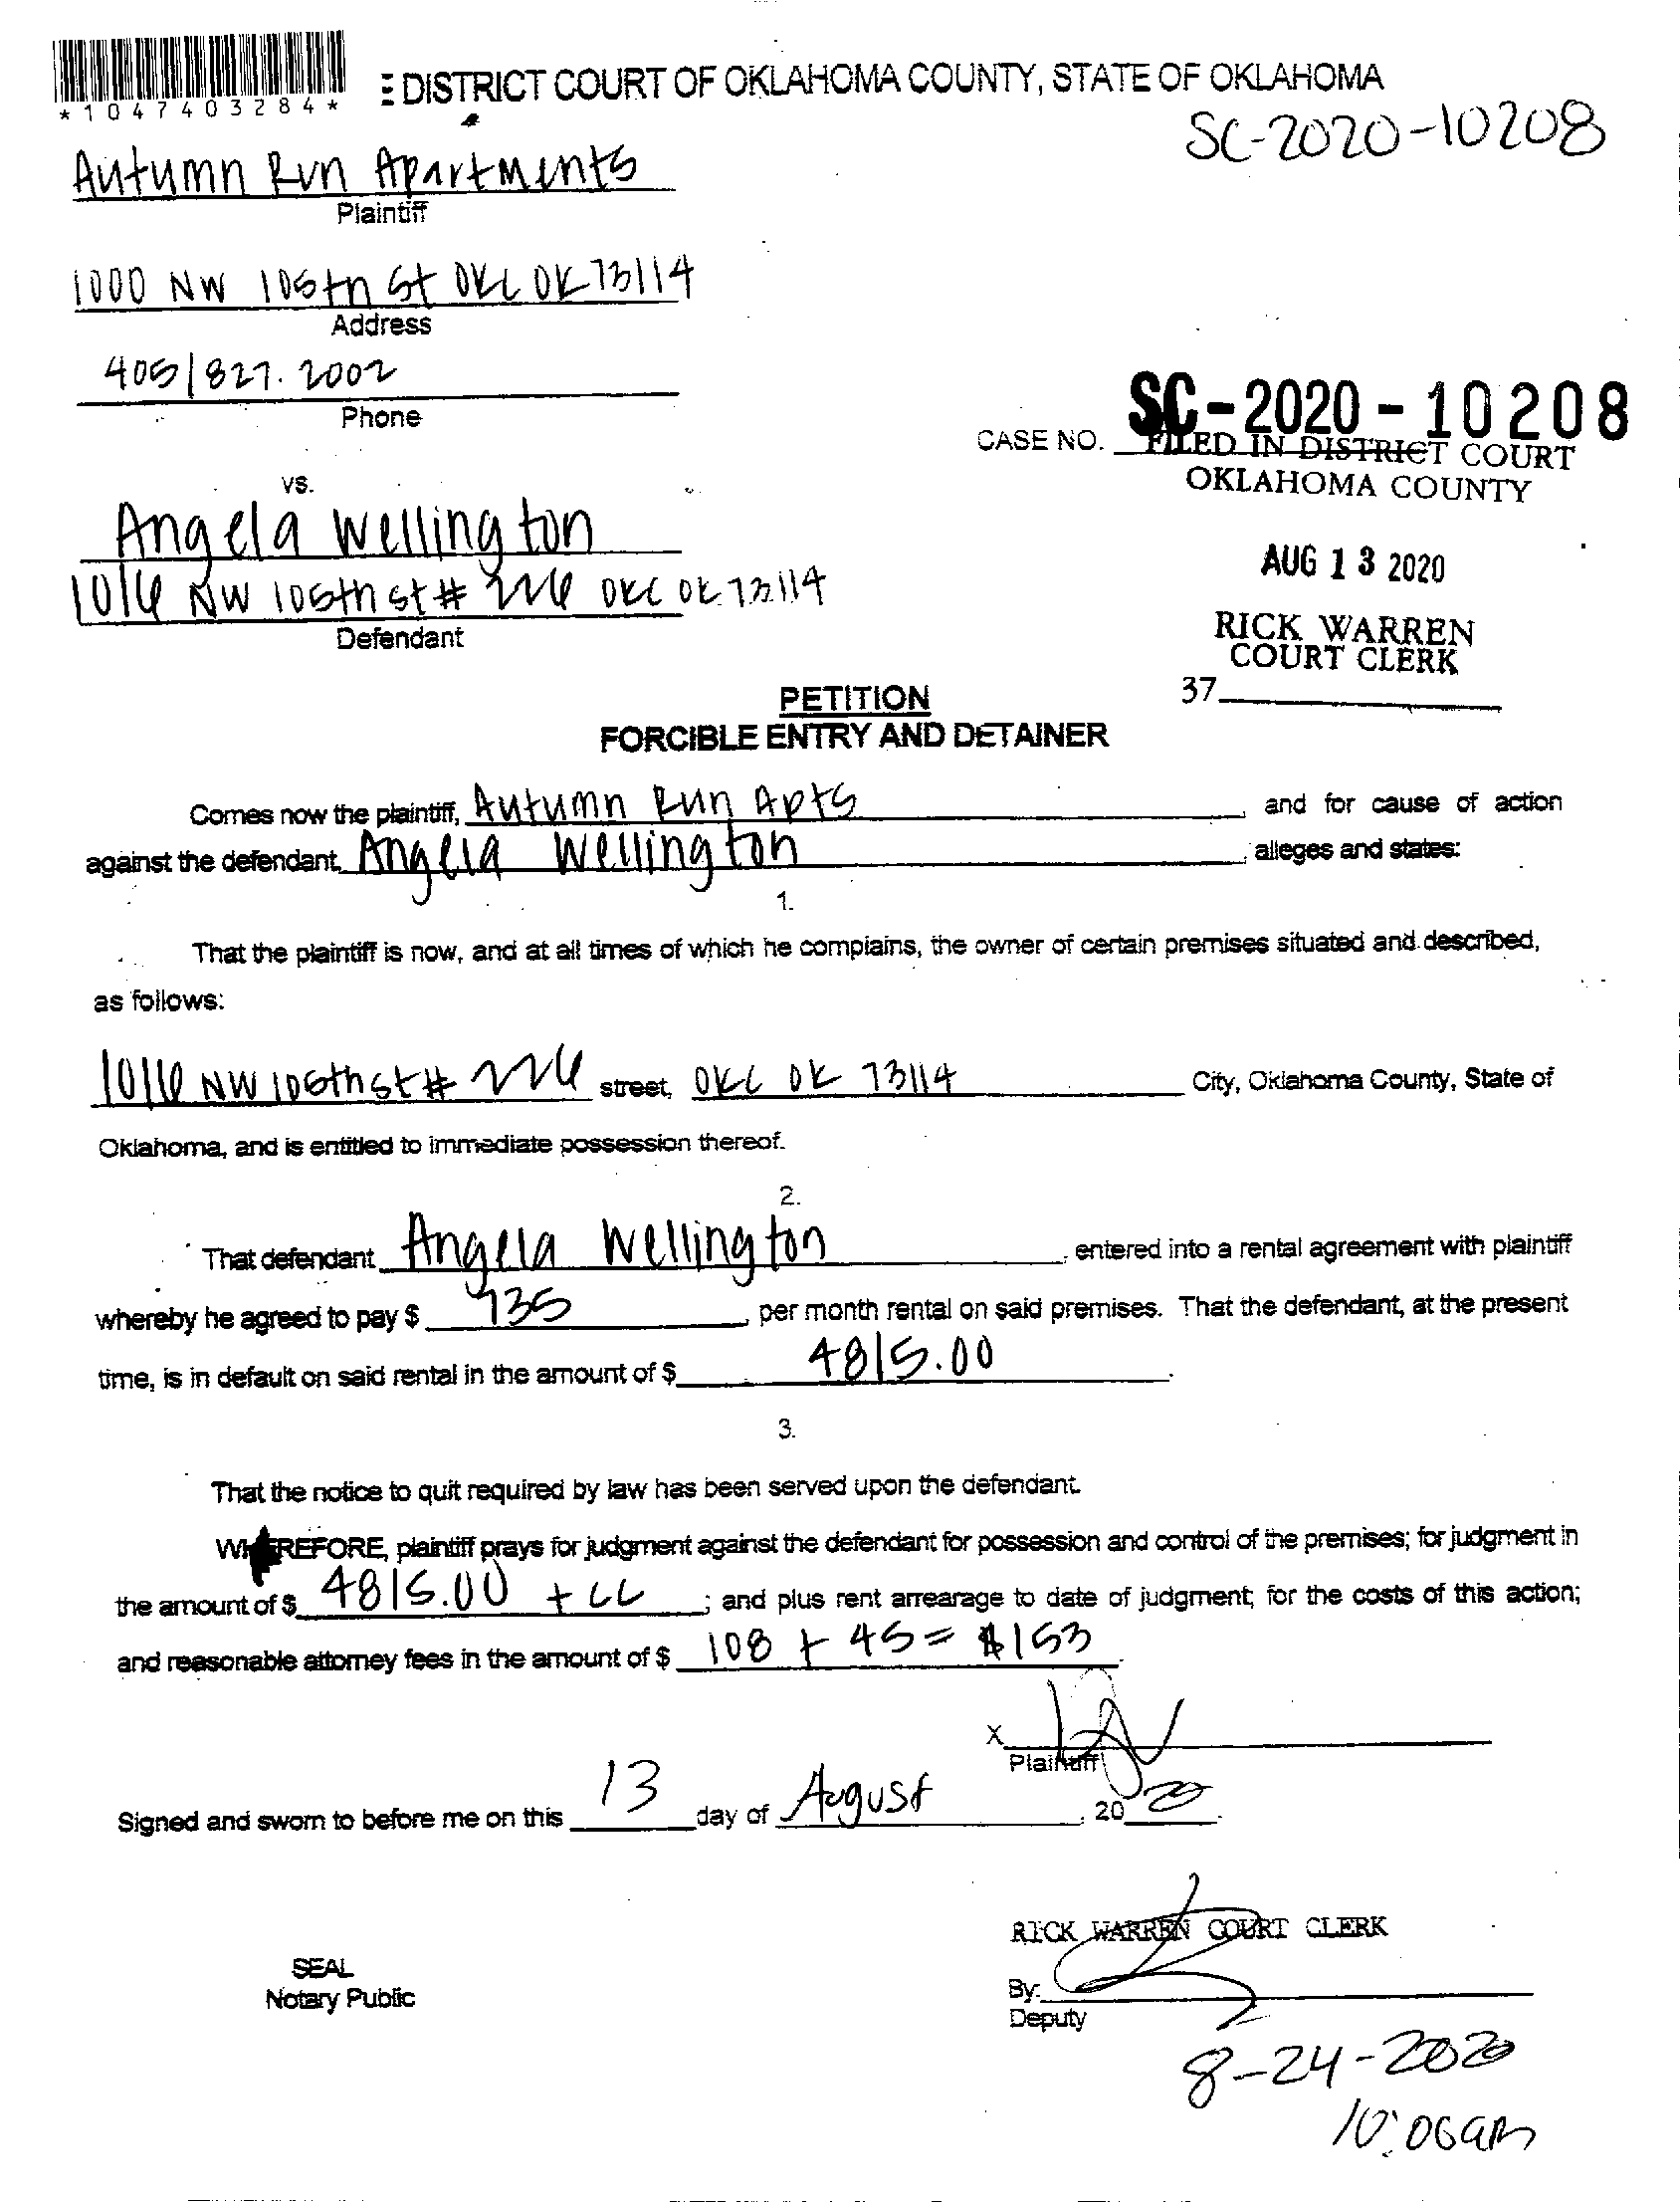 *1047403284*
E DISTRICT COURT OF OKLAHOMA COUNTY, STATE OF OKLAHOMA
SC-2020-10208
Autumn Run Apartments
Plaintiff
1000 NW 105th St OKC OK 73114
Address
405|827.2002
Phone
SC-2020-10208
CASE NO.
FILED IN DISTRICT COURT
OKLAHOMA COUNTY
vs.
Angela Wellington
AUG 13 2020
1016 NW 105th st # 226 OKC OK 73114
Defendant
RICK WARREN
COURT CLERK
37
PETITION
FORCIBLE ENTRY AND DETAINER
Comes now the plaintiff, Autumn Run Apts and for cause of action
against the defendant, Angela Wellington, alleges and states:
1.
That the plaintiff is now, and at all times of which he complains, the owner of certain premises situated and described,
as follows:
1016 NW 105th st # 226 street, OKC OK 73114 City, Oklahoma County, State of
Oklahoma, and is entitled to immediate possession thereof.
2.
That defendant Angela Wellington, entered into a rental agreement with plaintiff
whereby he agreed to pay $ 735, per month rental on said premises. That the defendant, at the present
time, is in default on said rental in the amount of $ 4815.00.
3.
That the notice to quit required by law has been served upon the defendant.
WHEREFORE, plaintiff prays for judgment against the defendant for possession and control of the premises; for judgment in
the amount of $ 4815.00 + CC; and plus rent arrearage to date of judgment; for the costs of this action;
and reasonable attorney fees in the amount of $ 108 + 45 = $153.
X
Plaintiff
Signed and sworn to before me on this 13 day of August, 2020.
RICK WARREN COURT CLERK
SEAL
Notary Public
By:
Deputy
8-24-2020
10:06am